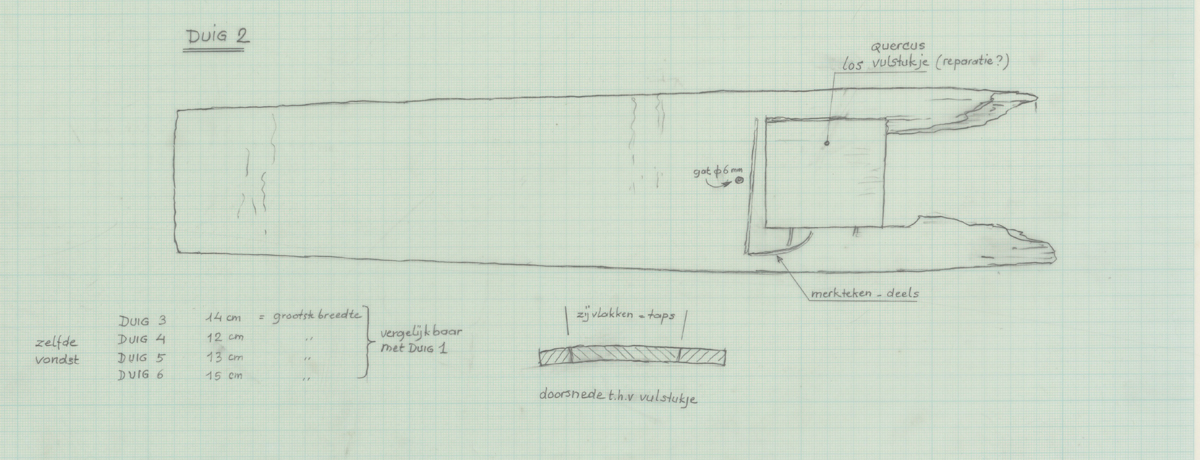 DUIG 2
Quercus
los vulstukje (reparatie?)
gat ϕ 6 mm
merkteken - deels
zelfde
vondst
DUIG 3 14 cm = grootste breedte
DUIG 4 12 cm ,,
DUIG 5 13 cm ,,
DUIG 6 15 cm ,,
vergelijkbaar
met DUIG 1
zijvlakken = taps
doorsnede t.h.v vulstukje